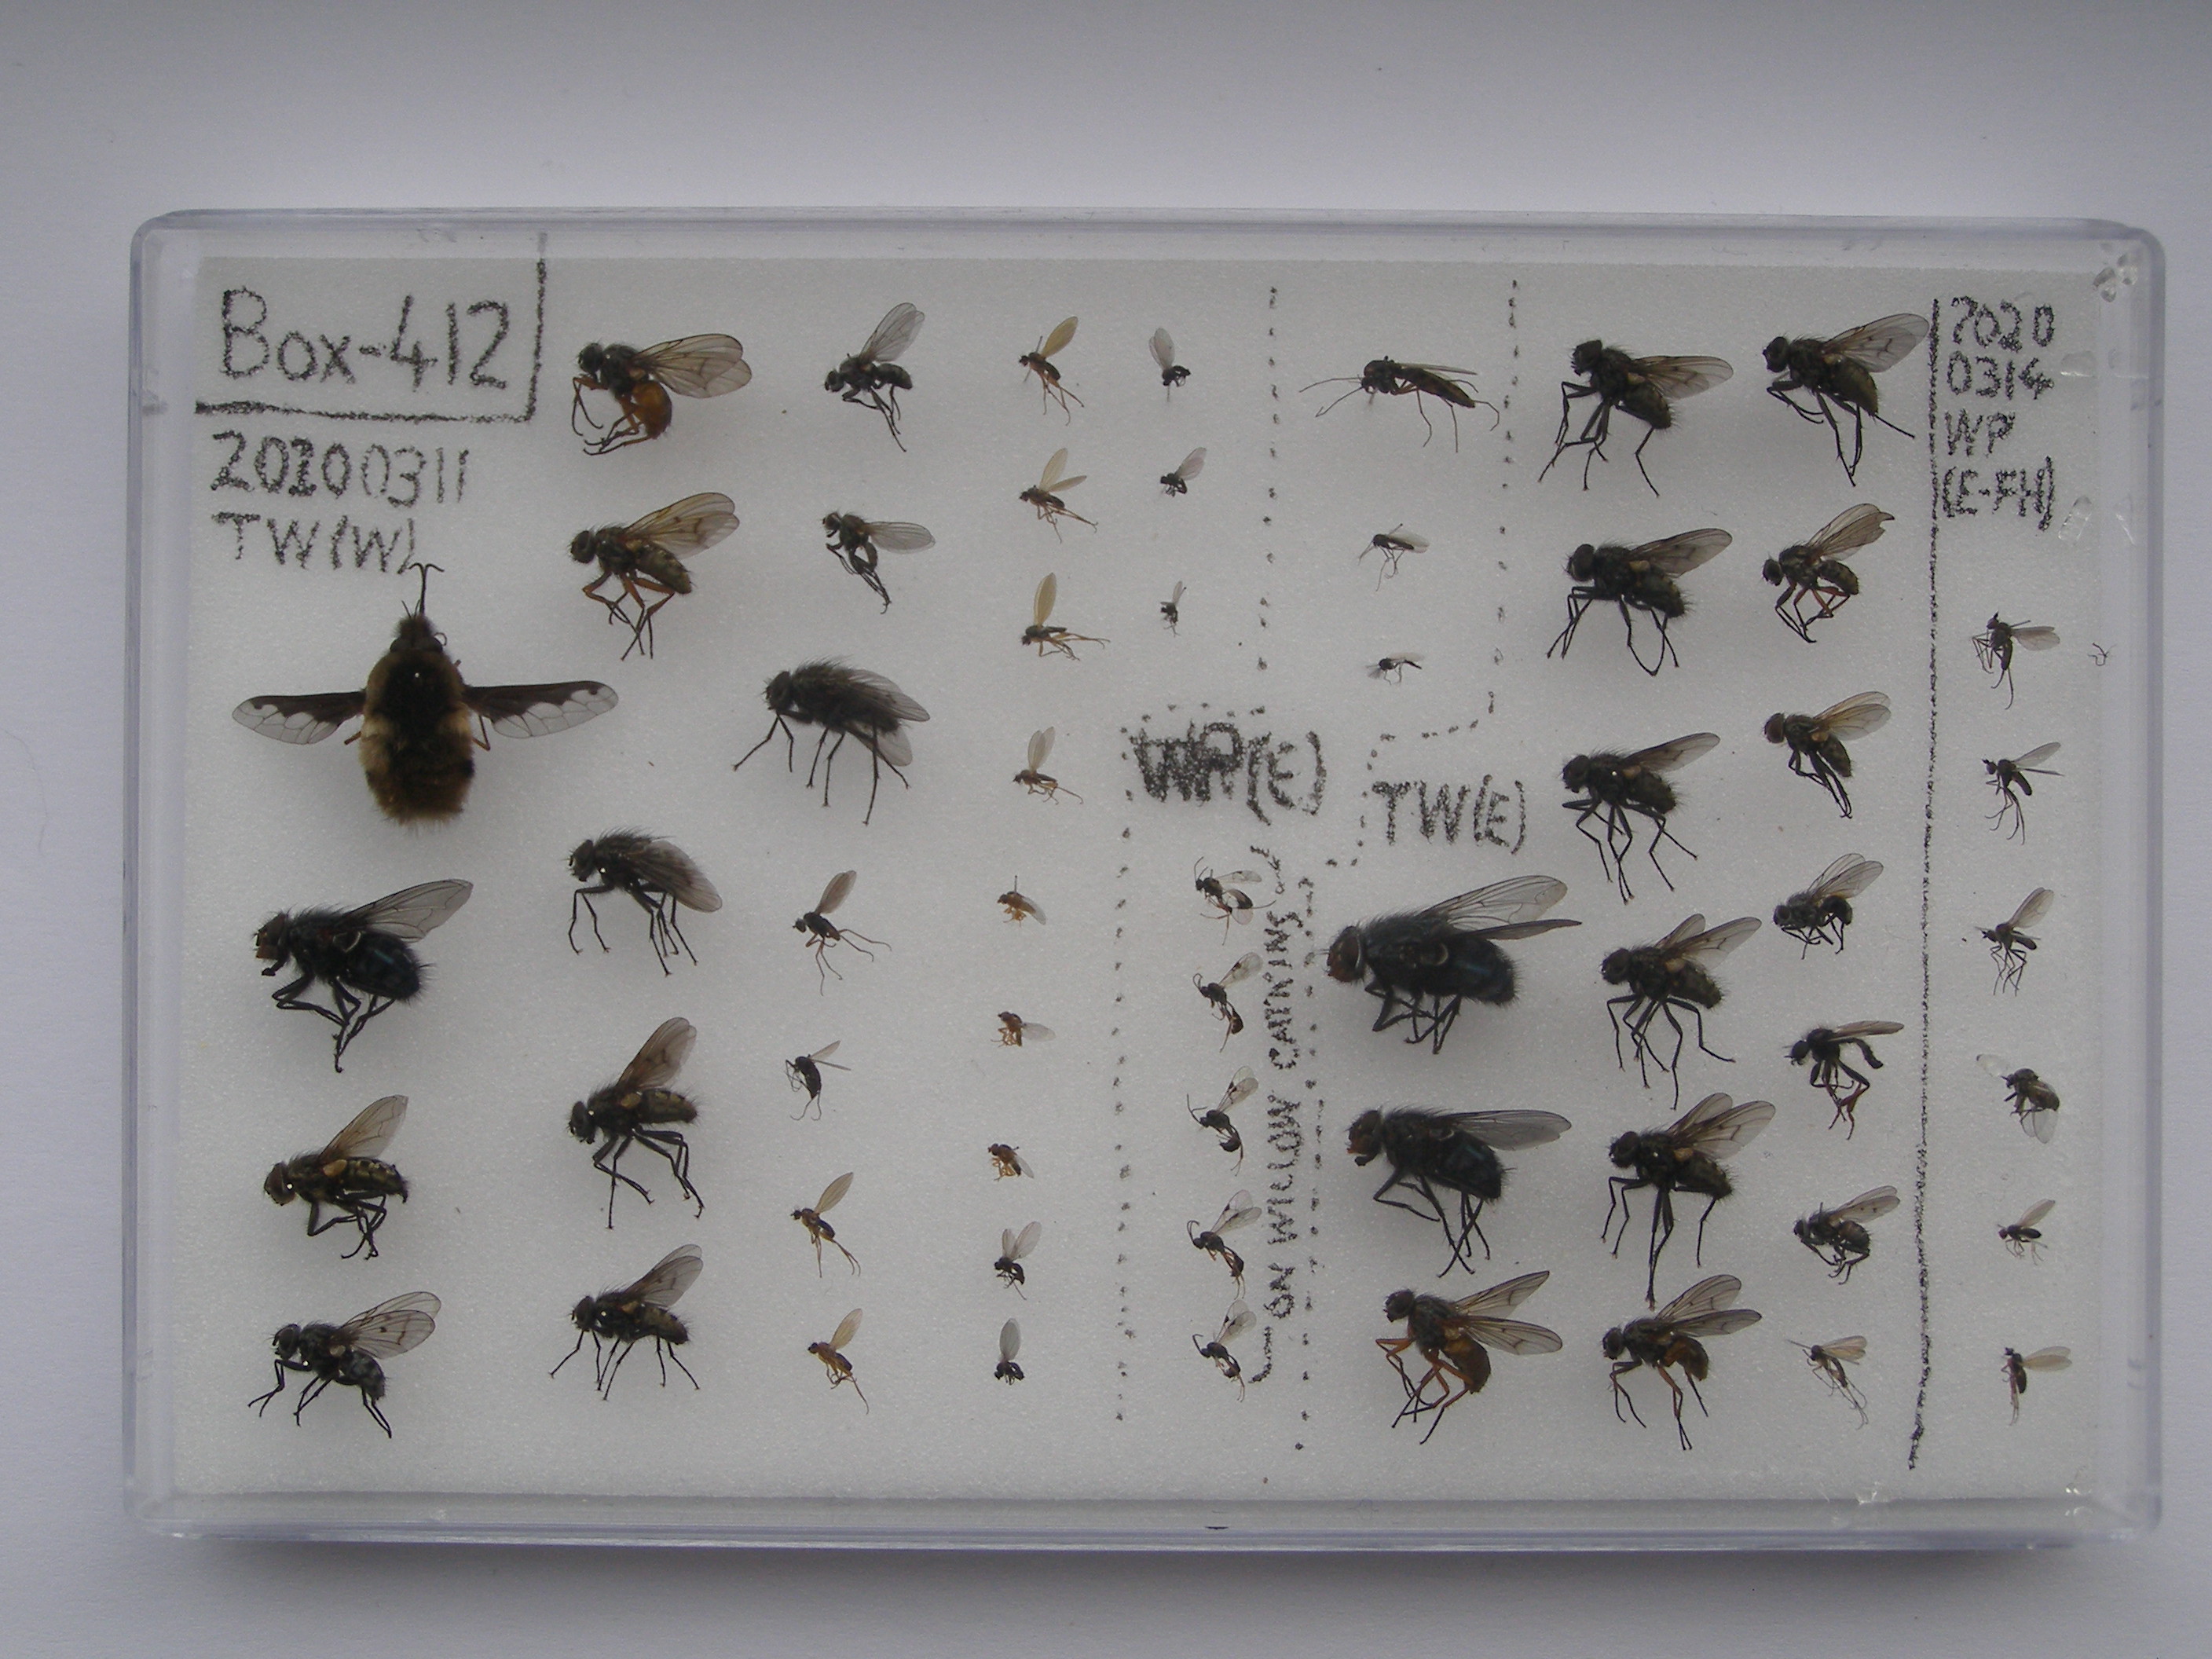 Box-412
20200311
TW(W)
WP(E)
ON WILLOW CATKINS
TW(E)
2020
0314
WP
(E-FH)